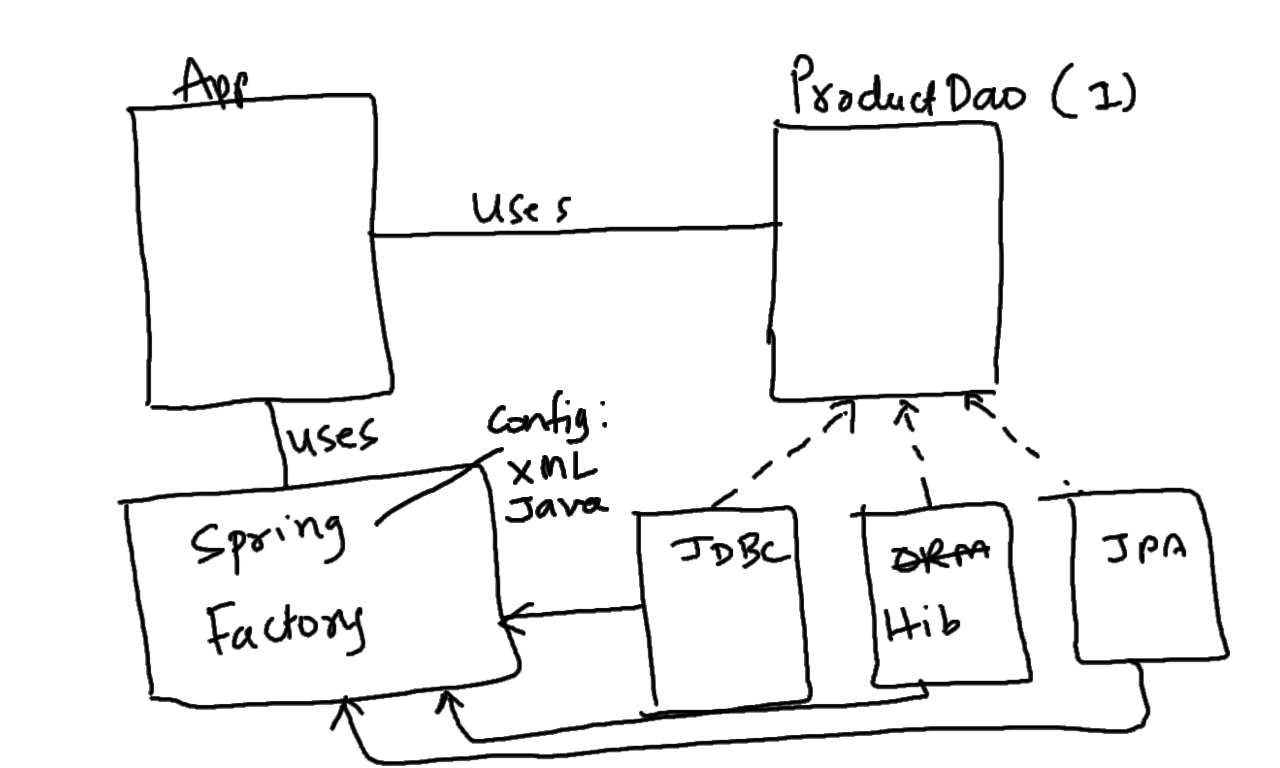 App
ProductDao (I)
uses
uses
Config:
XML
Java
Spring
Factory
JDBC
ORM
Hib
JPA